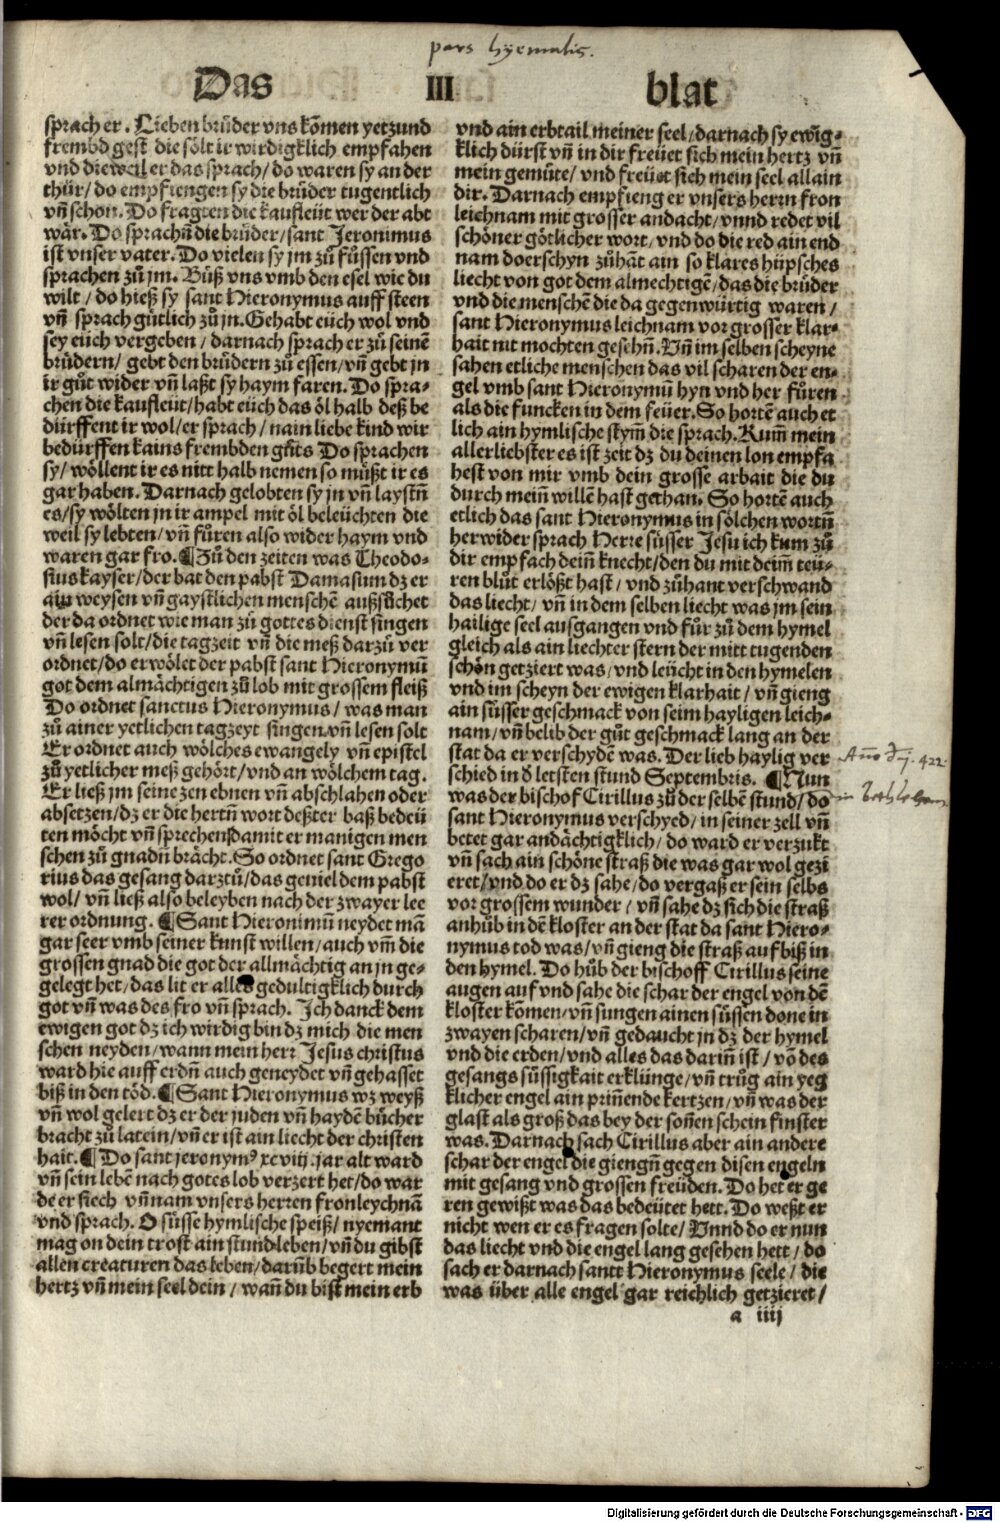 pars hyemalis.
Das III blat
sprach er. Lieben brůder vns kōmen yetzund
frembd gest die sölt ir wirdigklich empfahen
vnd die weil er das sprach/ do waren sy an der
thür/ do empfiengen sy die brůder tugentlich
vñ schon. Do fragten die kaufleüt wer der abt
wår. Do sprachñ die brůder/ sant Jeronimus
ist vnser vater. Do vielen sy jm zů fůssen vnd
sprachen zů jm. Bůß vns vmb den esel wie du
wilt/ do hieß sy sant Hieronymus auff steen
vñ sprach gůtlich zů jn. Gehabt eüch wol vnd
sey eüch vergeben/ darnach sprach er zů seinē
brůdern/ gebt den brůdern zů essen/ vñ gebt jn
ir gůt wider vñ laßt sy haym faren. Do spra-
chen die kaufleüt/ habt eüch das öl halb deß be
dürffent ir wol/ er sprach/ nain liebe kind wir
bedürffen kains frembden gůts Do sprachen
sy/ wöllent ir es nitt halb nemen so můßt ir es
gar haben. Darnach gelobten sy jn vñ laystñ
es/ sy wölten jn ir ampel mit öl beleüchten die
weil sy lebten/ vñ fůren also wider haym vnd
waren gar fro. ¶Zů den zeiten was Theodo-
sius kayser/ der bat den pabst Damasum dz er
ain weysen vñ gaystlichen menschē außsůchet
der da ordnet wie man zů gottes dienst singen
vñ lesen solt/ die tagzeit vñ die meß darzů ver
ordnet/ do erwölet der pabst sant Hieronymū
got dem almächtigen zů lob mit grossem fleiß
Do ordnet sanctus Hieronymus/ was man
zů ainer yetlichen tagzeyt singen vñ lesen solt
Er ordnet auch wölches ewangely vñ epistel
zů yetlicher meß gehört/ vnd an wölchem tag.
Er ließ jm seine zen ebnen vñ abschlahen oder
absetzen/ dz er die hertñ wort deßter baß bedeü
ten möcht vñ sprechen/ damit er manigen men
schen zů gnadñ brächt. So ordnet sant Grego
rius das gesang darzů/ das geuiel dem pabst
wol/ vñ ließ also beleyben nach der zwayer lee
rer ordnung. ¶Sant Hieronimū neydet mā
gar seer vmb seiner kunst willen/ auch vm̄ die
grossen gnad die got der allmächtig an jn ge-
gelegt het/ das lit er alles gedultigklich durch
got vñ was des fro vñ sprach. Ich danck dem
ewigen got dz ich wirdig bin dz mich die men
schen neyden/ wann mein herr Jesus christus
ward hie auff erdñ auch geneydet vñ gehasset
biß in den töd. ¶Sant Hieronymus wz weyß
vñ wol gelert dz er der juden vñ haydē bücher
bracht zů latein/ vñ er ist ain liecht der christen
hait. ¶Do sant jeronymꝰ xcviij. jar alt ward
vñ sein lebē nach gotes lob verzert het/ do war
de er siech vñ nam vnsers herren fronleychnā
vnd sprach. O süsse hymlische speiß/ nyemant
mag on dein trost ain stund leben/ vñ du gibst
allen creaturen das leben/ darūb begert mein
hertz vñ mein seel dein/ wañ du bist mein erb
vnd ain erbtail meiner seel/ darnach sy ewig-
klich dürst vñ in dir freüet sich mein hertz vñ
mein gemüte/ vnd freüet sich mein seel allain
dir. Darnach empfieng er vnsers herrn fron
leichnam mit grosser andacht/ vnnd redet vil
schöner götlicher wort/ vnd do die red ain end
nam do erschyn zůhāt ain so klares hüpsches
liecht von got dem almechtigē/ das die brůder
vnd die menschē die da gegenwürtig waren/
sant Hieronymus leichnam vor grosser klar-
hait nit mochten gesehñ. Vñ im selben scheyne
sahen etliche menschen das vil scharen der en-
gel vmb sant Hieronymū hyn vnd her fůren
als die funcken in dem feüer. So hortē auch et
lich ain hymlische stym̄ die sprach. Kum̄ mein
allerliebster es ist zeit dz du deinen lon empfa
hest von mir vmb dein grosse arbait die du
durch meiñ willē hast gethan. So hortē auch
etlich das sant Hieronymus in sölchen wortñ
herwider sprach Herre süsser Jesu ich kum zů
dir empfach deiñ knecht/ den du mit deim̄ teü-
ren blůt erlößt hast/ vnd zůhant verschwand
das liecht/ vñ in dem selben liecht was jm sein
hailige seel ausgangen vnd fůr zů dem hymel
gleich als ain liechter stern der mitt tugenden
schön getziert was/ vnd leücht in den hymelen
vnd im scheyn der ewigen klarhait/ vñ gieng
ain süsser geschmack von seim hayligen leich-
nam/ vñ belib der gůt geschmack lang an der
stat da er verschydē was. Der lieb haylig ver
schied in d̄ letsten stund Septembris. ¶Nun
was der bischof Cirillus zů der selbē stund/ do
sant Hieronymus verschyed/ in seiner zell vñ
betet gar andächtigklich/ do ward er verzukt
vñ sach ain schöne straß die was gar wol gezi
eret/ vnd do er dz sahe/ do vergaß er sein selbs
vor grossem wunder/ vñ sahe dz sich die straß
anhůb in dē kloster an der stat da sant Hiero-
nymus tod was/ vñ gieng die straß auf biß in
den hymel. Do hůb der bischoff Cirillus seine
augen auf vnd sahe die schar der engel von dē
kloster kōmen/ vñ sungen ainen süssen done in
zwayen scharen/ vñ gedaucht jn dz der hymel
vnd die erden/ vnd alles das dariñ ist/ vō des
gesangs süssigkait erklünge/ vñ trůg ain yeg
klicher engel ain priñende kertzen/ vñ was der
glast als groß das bey der soñen schein finster
was. Darnach sach Cirillus aber ain andere
schar der engel die giengñ gegen disen engeln
mit gesang vnd grossen freüden. Do het er ge
ren gewißt was das bedeütet hett. Do weßt er
nicht wen er es fragen solte/ Vnnd do er nun
das liecht vnd die engel lang gesehen hett/ do
sach er darnach santt Hieronymus seele/ die
was über alle engel gar reichlich getzieret/
Año dñj. 422
in bethlehem
a iiij
Digitalisierung gefördert durch die Deutsche Forschungsgemeinschaft - DFG